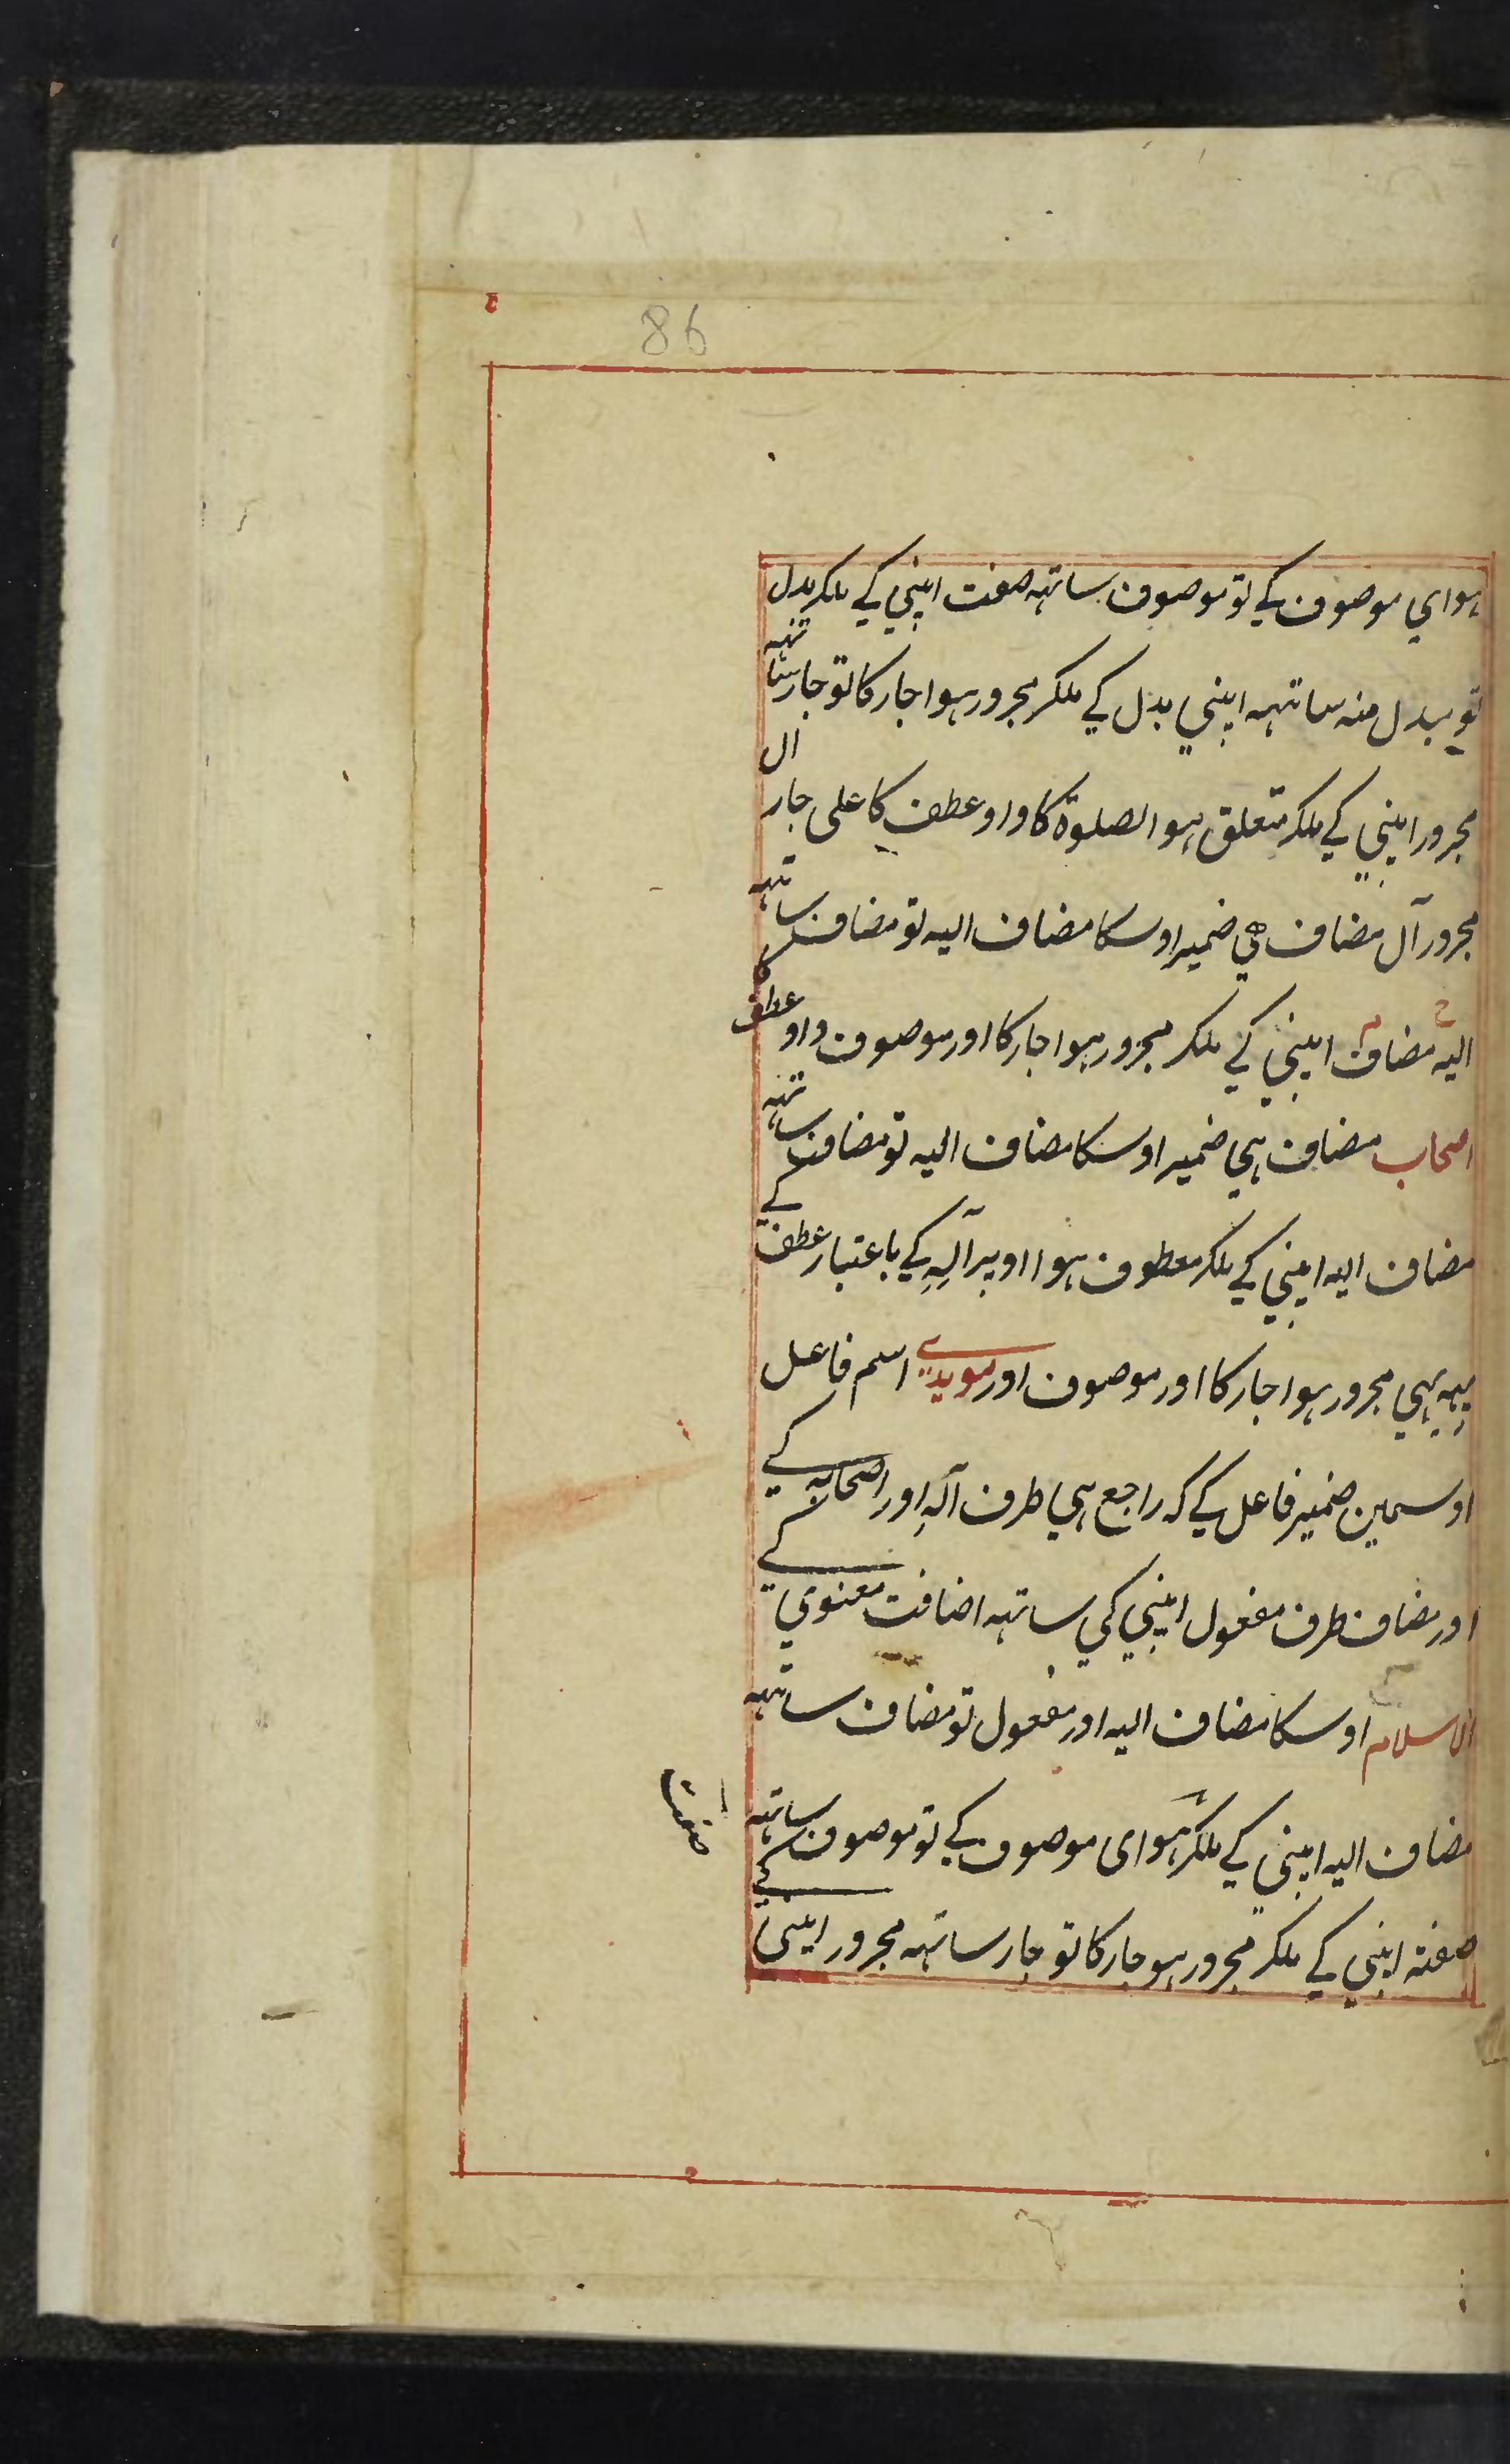 86
ہوای موصوف کے تو موصوف ساتہہ صفت اپنی کے ملکر بدل
تو مبدل منہ ساتہہ اپنی بدل کے ملکر مجرور ہوا جار کا تو جار ساتہہ
مجرور اپنی کے ملکر متعلق ہوا لصلوۃ کا واو عطف کا علی جار ال
مجرور آل مضاف ہی ضمیر اوسکا مضاف الیہ تو مضاف ساتہہ
الیہ مضاف اپنی کے ملکر مجرور ہوا جار کا اور موصوف واو عطف کا
اصحاب مضاف ہی ضمیر اوسکا مضاف الیہ تو مضاف ساتہہ
مضاف الیہ اپنی کے ملکر معطوف ہوا اوپر آلِہِ کے باعتبار عطف کے
یہہ بہی مجرور ہوا جار کا اور موصوف اور مویدی اسم فاعل
اوسمین ضمیر فاعل کے کہ راجع ہی طرف آلہِ اور اصحابہ کے
اور مضاف طرف مفعول اپنی کی ساتہہ اضافت معنوی کے
الاسلام اوسکا مضاف الیہ اور مفعول تو مضاف ساتہہ
مضاف الیہ اپنی کے ملکر ہوای موصوف کے تو موصوف ساتہہ
صفت
صفتہ اپنی کے ملکر مجرور ہو جار کا تو جار ساتہہ مجرور اپنی کے